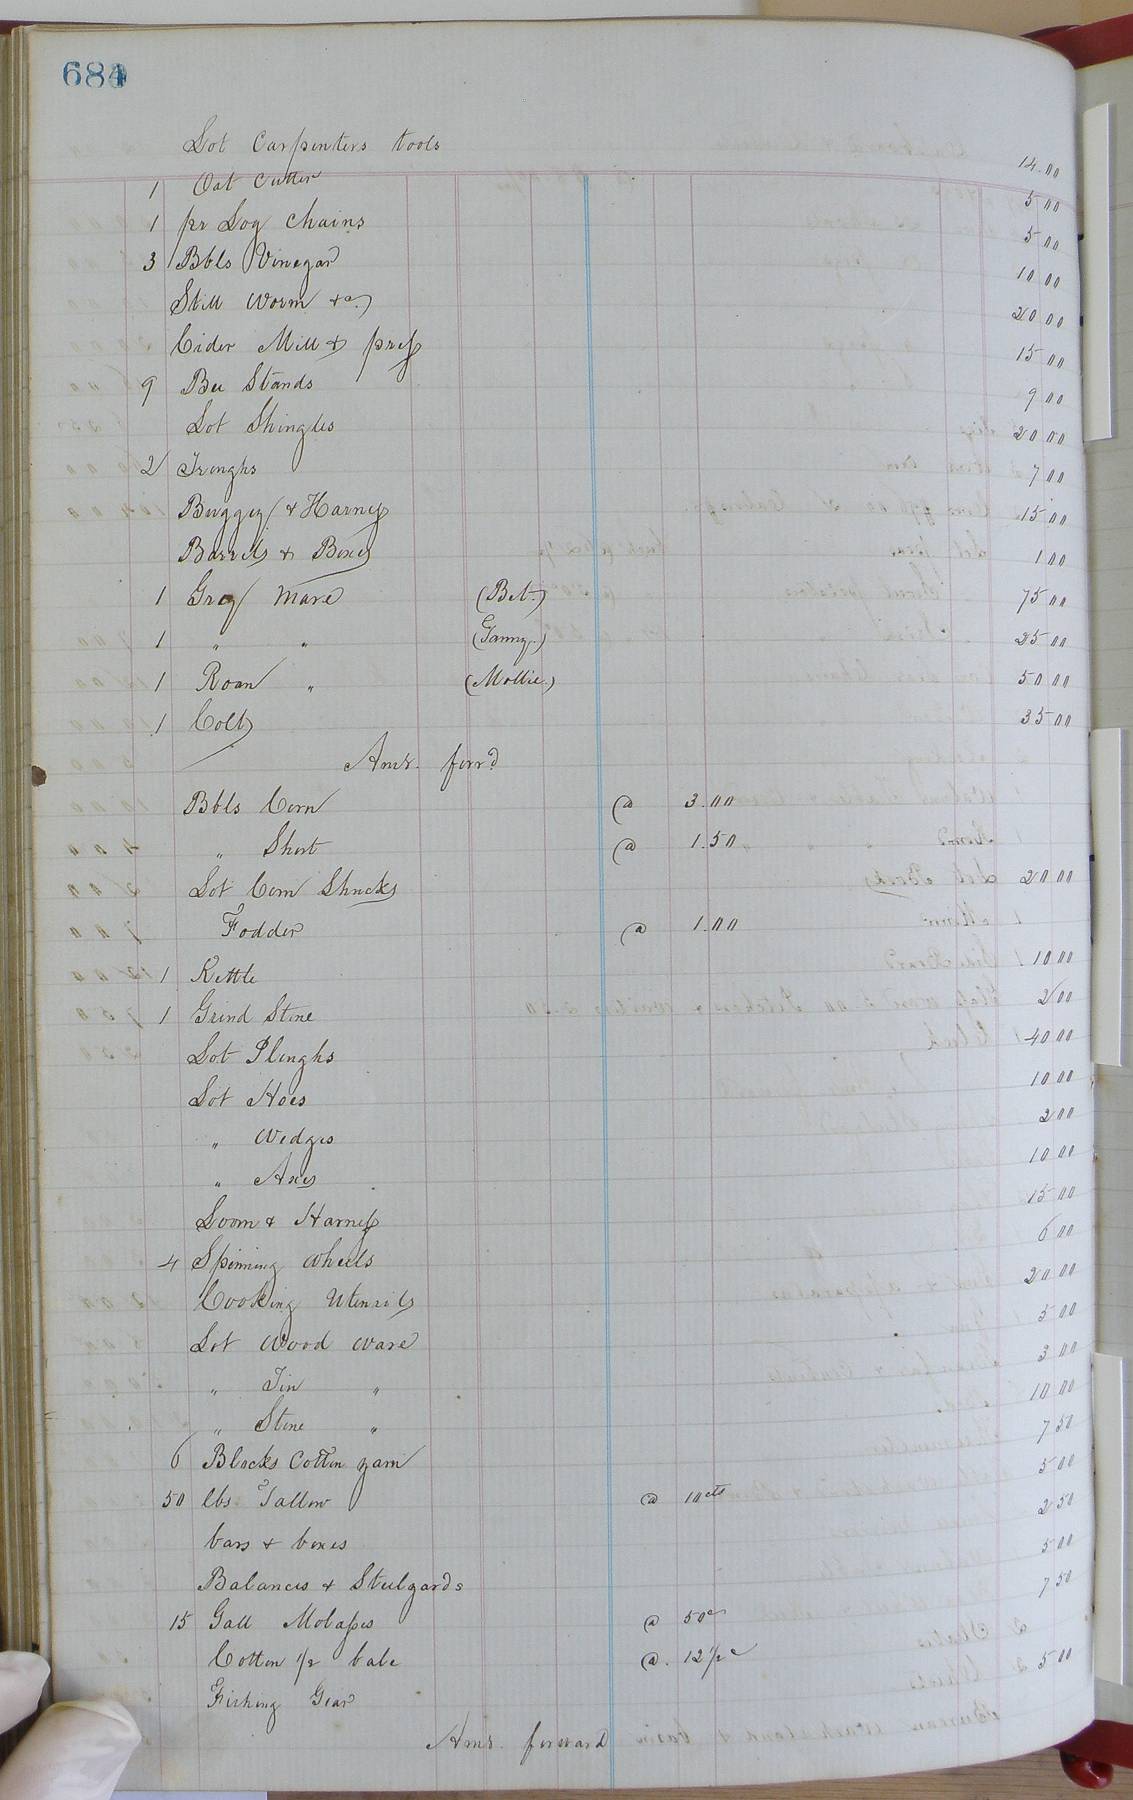 684
Lot Carpenters tools 14.00
1 Oat Cutter 5 00
1 pr Log Chains 5 00
3 Bbls Vinegar 10 00
Still Worm &c. 20 00
Cider Mill & press 15 00
9 Bee Stands 9 00
Lot Shingles 20 00
2 Troughs 7 00
Buggey & Harness 15 00
Barrels & Boxes 1 00
1 Grey Mare (Bet.) 75 00
1 " " (Fanny.) 25 00
1 Roan " (Mollie.) 50 00
1 Colt 35 00
Amt. forrd
Bbls Corn @ 3.00
" Short @ 1.50
Lot Corn Shucks 20 00
Fodder @ 1.00
1 Kettle 10 00
1 Grind Stone 2 00
Lot Ploughs 40 00
Lot Hoes 10 00
" Wedges 2 00
" Axes 10 00
Loom & Harness 15 00
4 Spinning Wheels 6 00
Cooking Utensils 20 00
Lot Wood Ware 5 00
" Tin " 3 00
" Stone " 10 00
6 Blocks Cotton yarn 7 50
50 lbs Tallow @ 10cts 5 00
bars & boxes 2 50
Balances & Steelyards 5 00
15 Gall Molasses @ 50c 7 50
Cotton 1/2 bale @. 12 1/2 c
Fishing Gear 5 00
Amt. forward